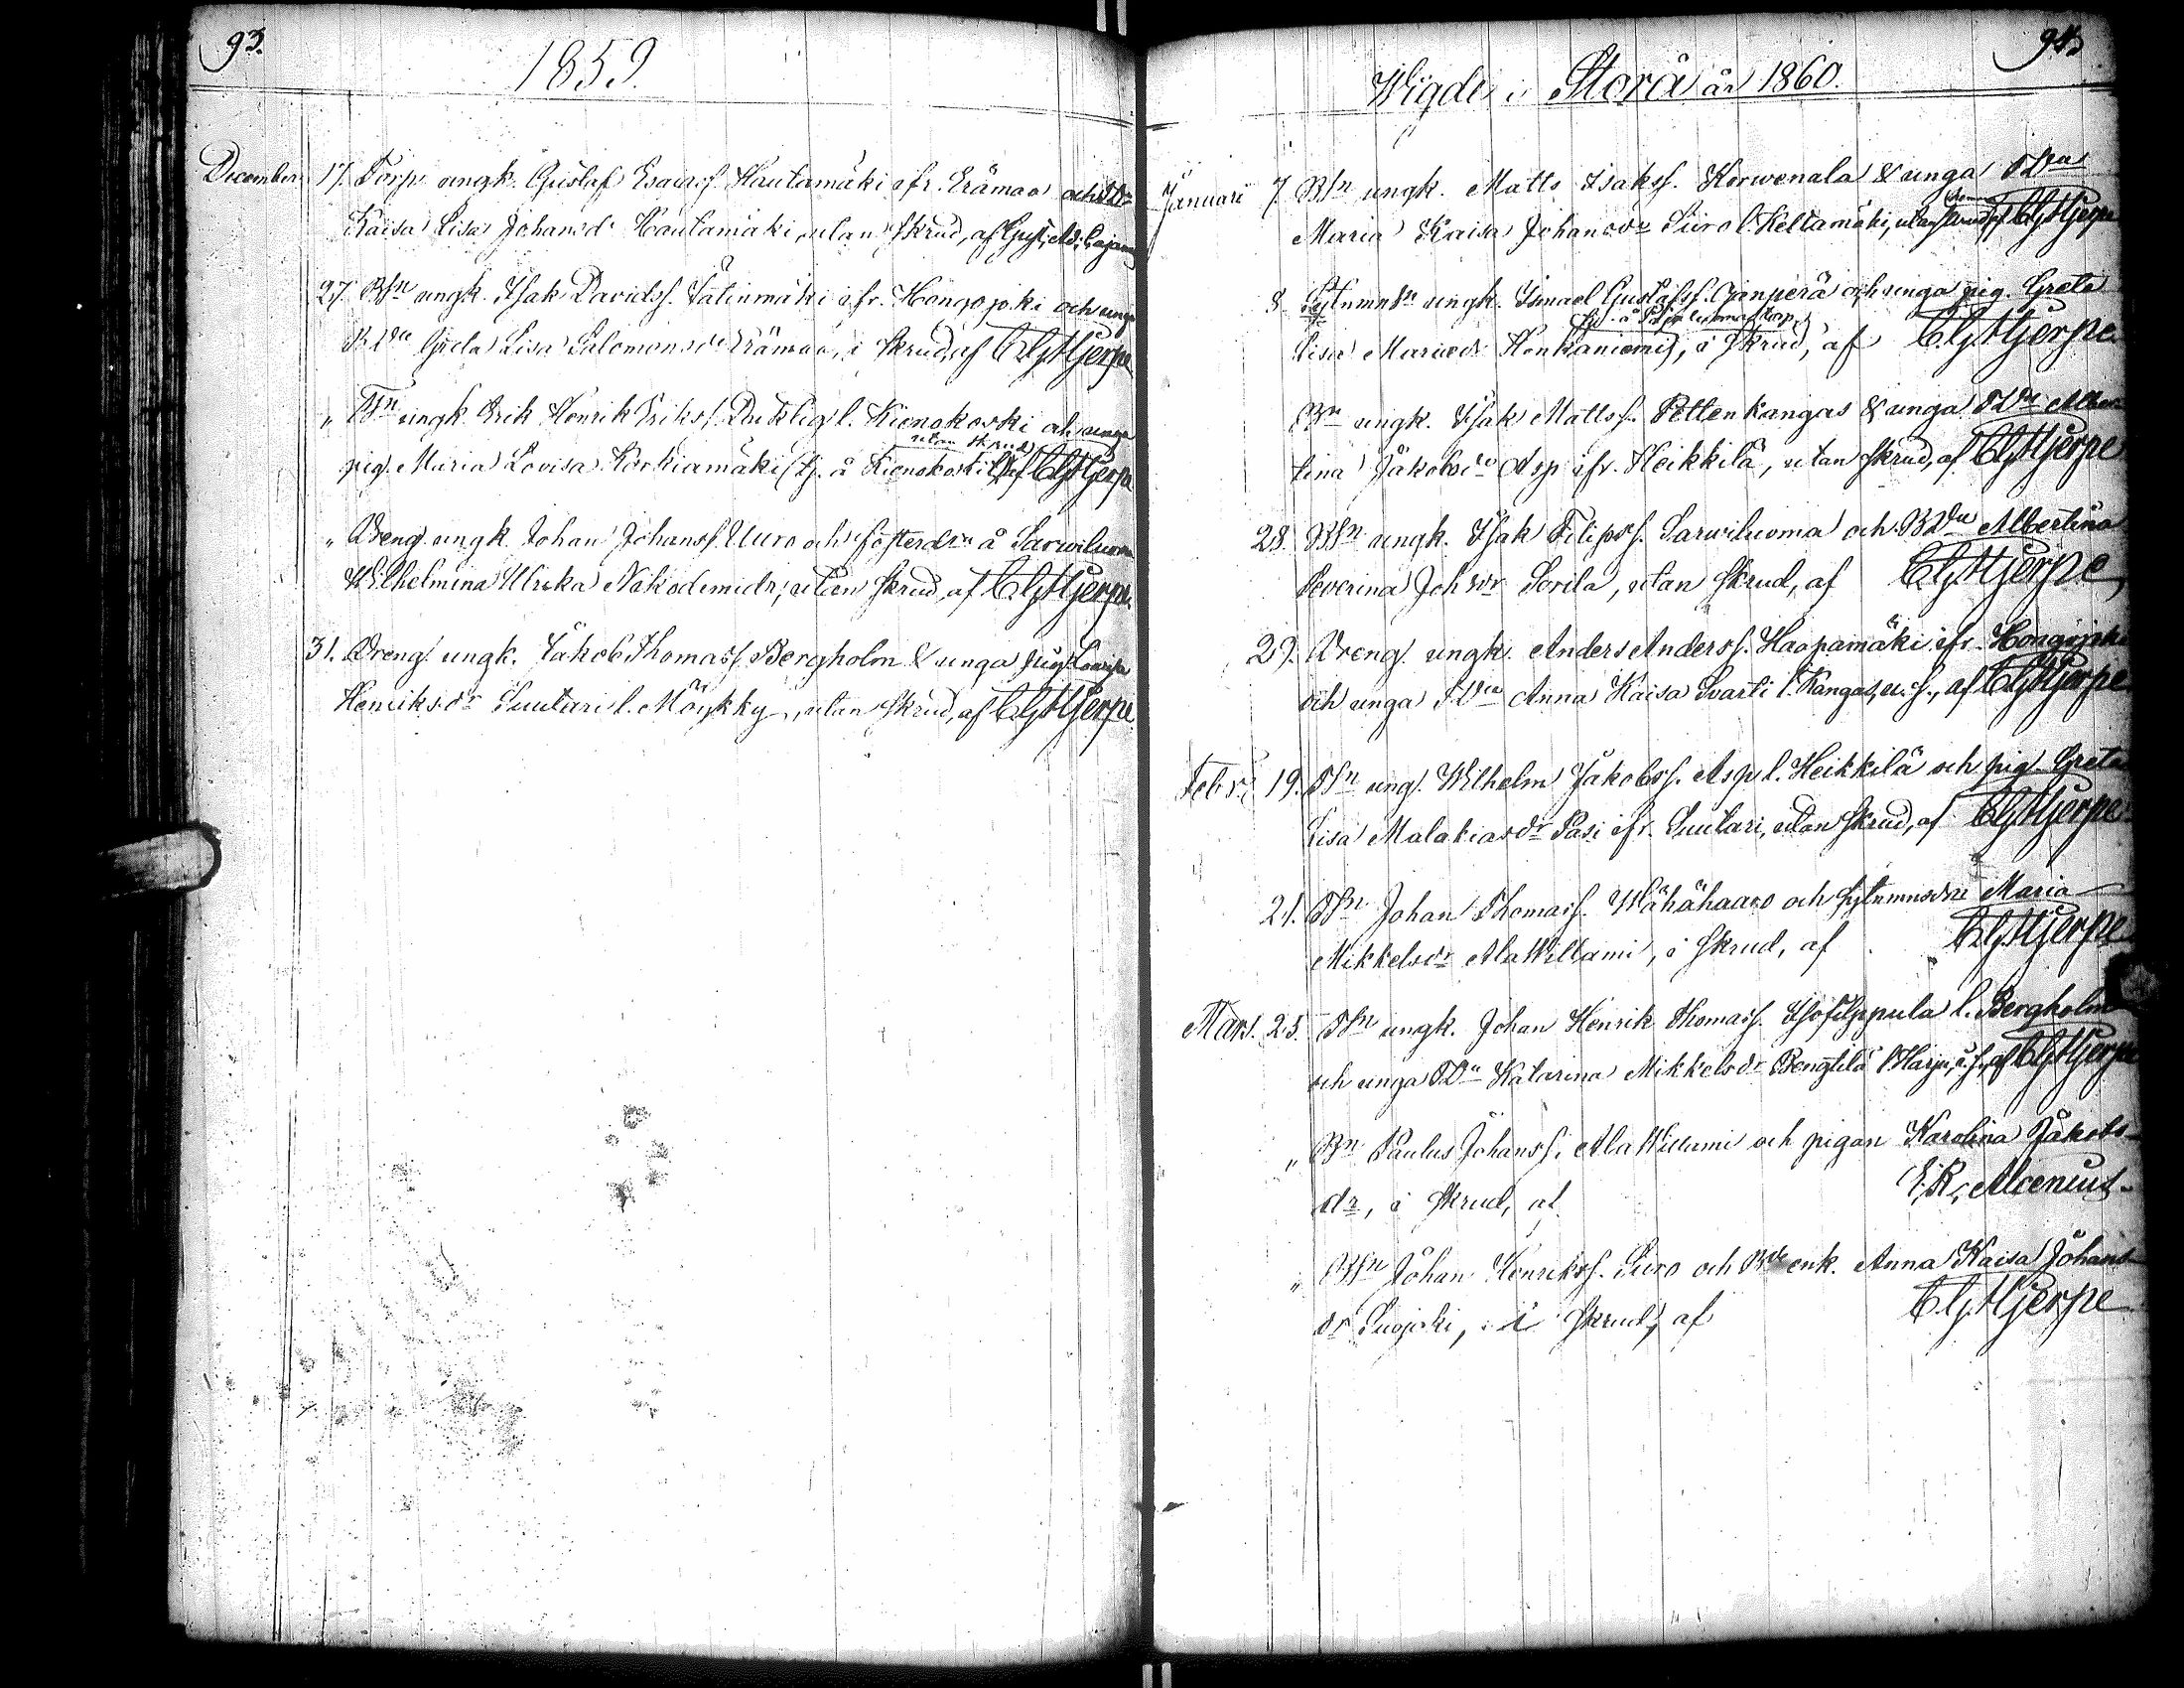 93.
1859.
December 17. Torp. ungk. Gustaf Esaiass. Hautamäki ifr. Erämaa och
Kaisa Lisa Johansdr Hautamäki, utan skrud, af Gust. Ad. Cajan
27. Bsn ungk. Isak Davidss. Sätinmäki ifr. Hongojoki och unga
BDn Greta Lisa Salomonsdr Erämaa, i skrud, af C.G. Hjerpe
" Tsn ungk. Erik Henrik Erikss. Duktig l. Kienokoski och unga
utan skrud
pig. Maria Lovisa Korkiamäki (tj. å Kienokoski) af C.G. Hjerpe
" Dreng. ungk. Johan Johanss. Uuro och fosterdrn å Sarwiluoma
Wilhelmina Ulrika Nikodemidr, utan skrud, af C.G. Hjerpe
31. Dreng. ungk. Jakob Thomass. Bergholm & unga pig. Lovisa
Henriksdr Suutari l. Möykky, utan skrud, af C.G. Hjerpe
94.
Wigde i Storå år 1860.
Januari 7. Bsn ungk. Matts Isakss. Korwenala & unga TDrn
Maria Kaisa Johansdr Siiro l. Keltamäki, utan skrud af C.G. Hjerpe
8. Sytnmnsn ungk. Ismael Gustafss. Ojanperä och unga pig. Greta
Lisa Mariædr Honkaniemi, i skrud, af C.G. Hjerpe.
Bn ungk. Isak Mattss. Pettenkangas & unga TDn Alber-
tina Jakobsdr Asp ifr. Heikkilä, utan skrud, af C.G. Hjerpe
28. Bsn ungk. Isak Filipss. Sarwiluoma och BDn Albertina
Severina Johsdr Sorila, utan skrud, af C.G. Hjerpe
29. Dreng. ungk. Anders Anderss. Haapamäki ifr. Hongojoki
och unga TDn Anna Kaisa Svarti l. Kangas, u. s., af C.G. Hjerpe
Febr. 19. Tsn ung. Wilhelm Jakobss. Asp l. Heikkilä och pig. Greta
Lisa Malakiasdr Pasi ifr. Suutari, utan skrud, af C.G. Hjerpe
21. Tsn Johan Thomass. Wähähaaro och sytnmnsdrn Maria
Mikkelsdr AlaWillami, i skrud, af C.G. Hjerpe
Mars. 25. Tsn ungk. Johan Henrik Thomass. Isofilppula l. Bergholm
och unga TDn Katarina Mikkelsdr Bengtilä l. Harju, i s., af C.G. Hjerpe
" Bn Paulus Johanss. AlaWillami och pigan Karolina Jakobs-
dr, i skrud, af E.R. Alcenius.
" Bsn Johan Henrikss. Siiro och enk. Anna Kaisa Johans-
dr Suojoki, i skrud, af C.G. Hjerpe